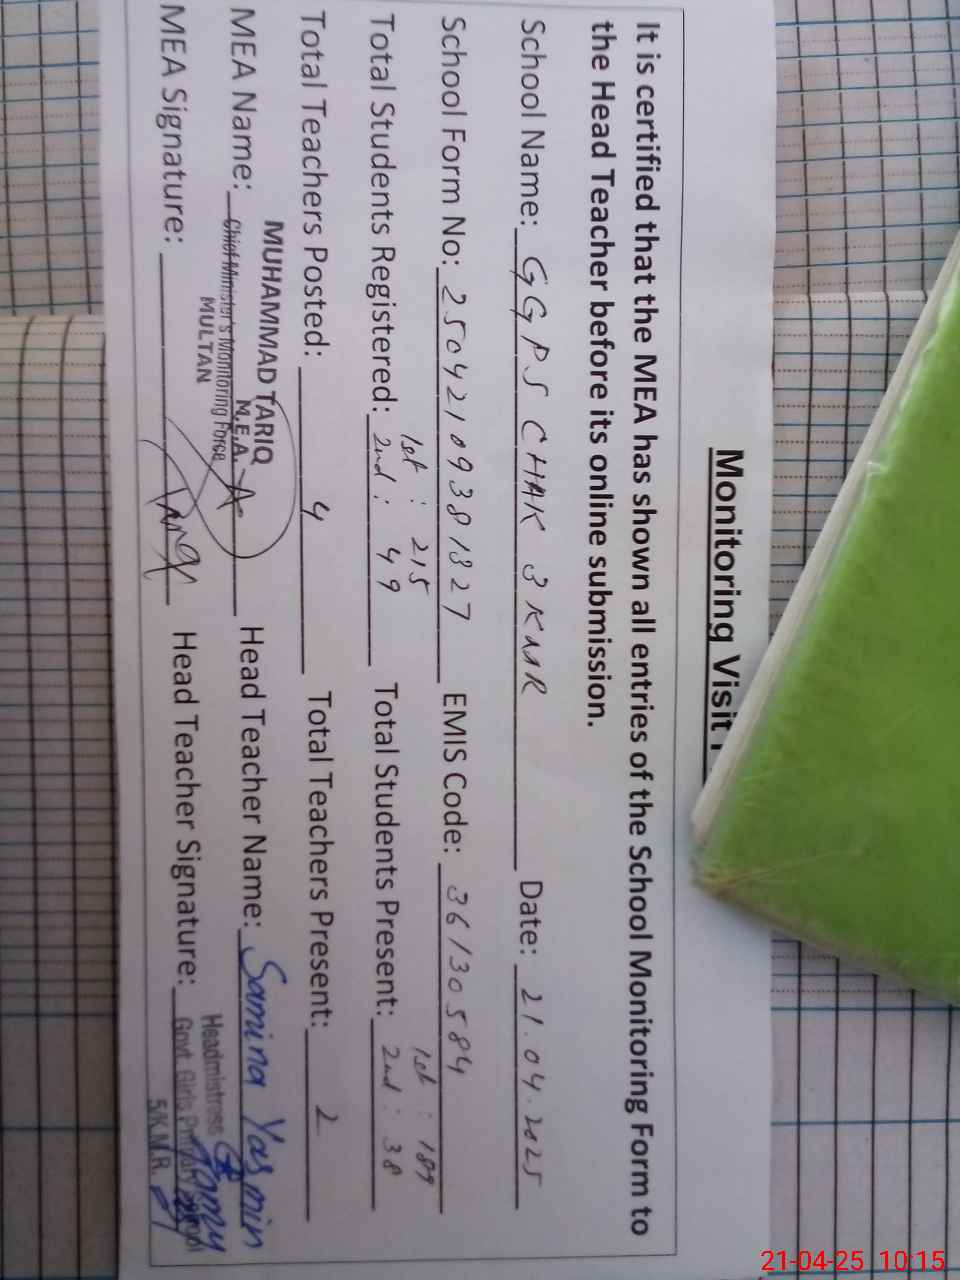 Monitoring Visit
It is certified that the MEA has shown all entries of the School Monitoring Form to
the Head Teacher before its online submission.
School Name: GGPS CHAK 3 KMR Date: 21.04.2025
School Form No: 25042109381327 EMIS Code: 36130584
Total Students Registered: 1st : 215 2nd : 49 Total Students Present: 1st : 189 2nd : 38
Total Teachers Posted: 4 Total Teachers Present: 2
MEA Name: MUHAMMAD TARIQ Head Teacher Name: Samina Yasmin
M.E.A.
Chief Minister's Monitoring Force
MULTAN
MEA Signature: Head Teacher Signature:
Headmistress
Govt. Girls Primary School
5/K.M.R.
21-04-25 10:15